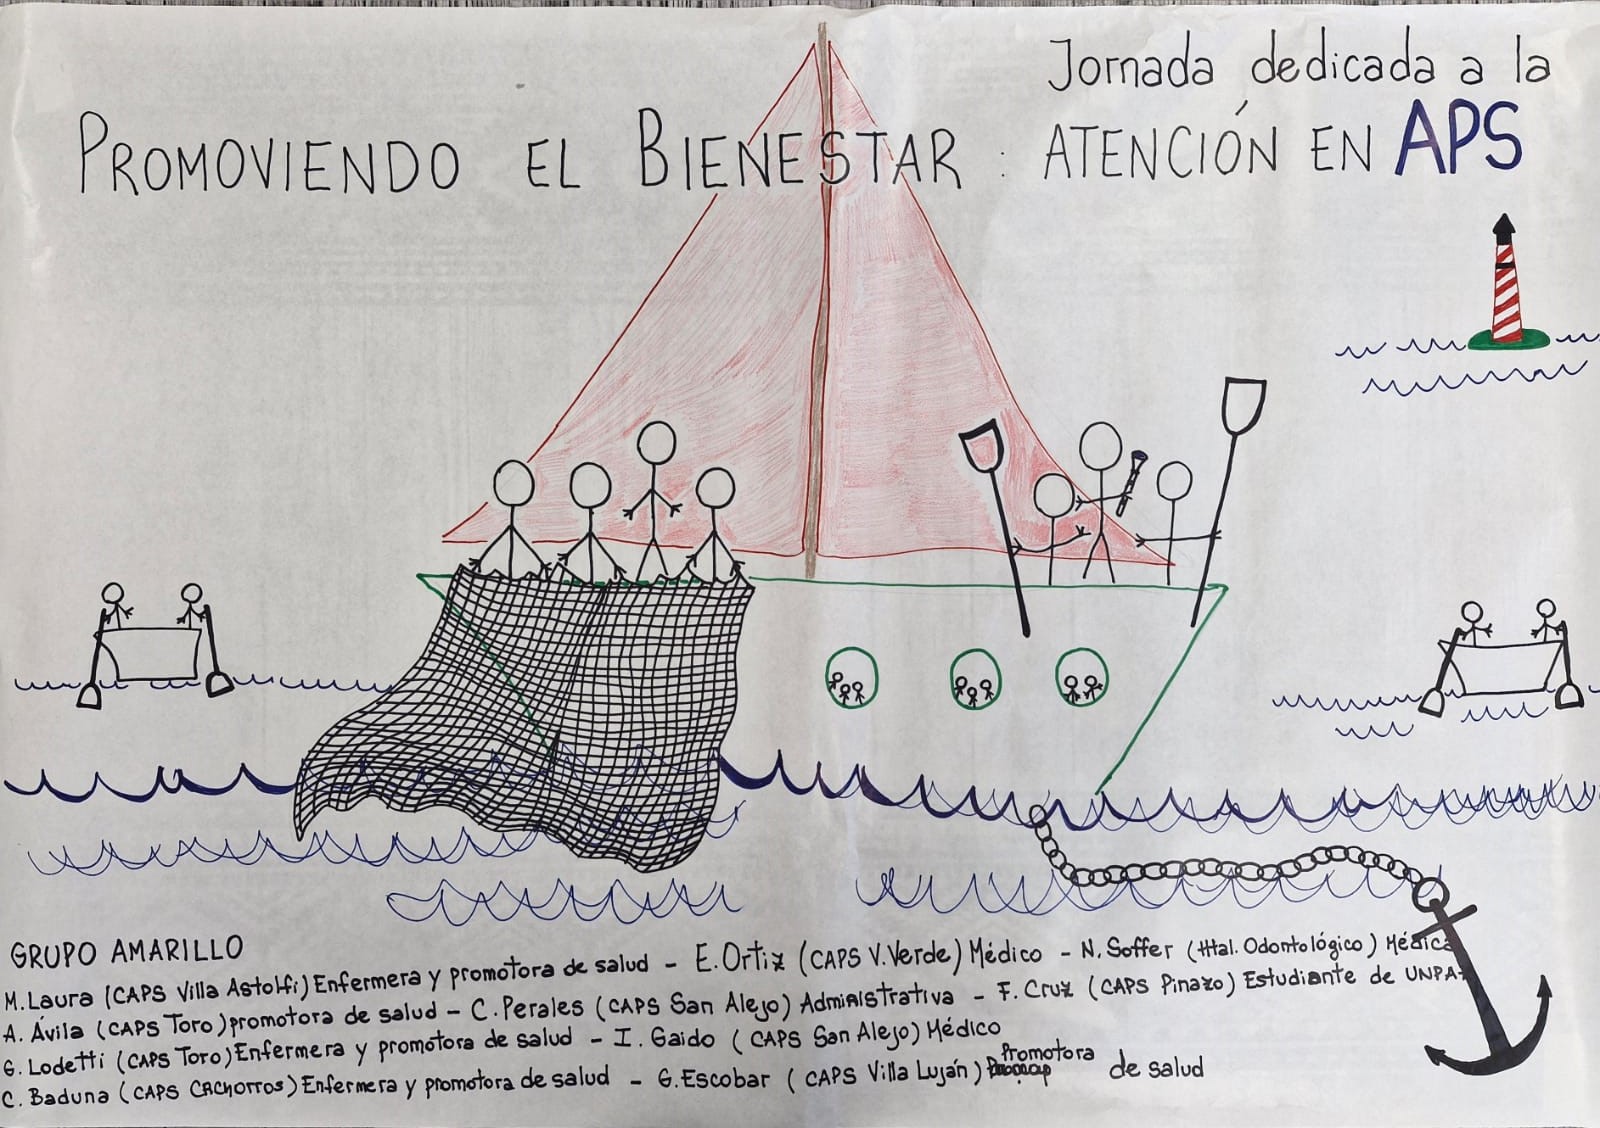 Jornada dedicada a la
PROMOVIENDO EL BIENESTAR : ATENCIÓN EN APS
GRUPO AMARILLO
M. Laura (CAPS Villa Astolfi) Enfermera y promotora de salud - E. Ortiz (CAPS V. Verde) Médico - N. Soffer (Htal. Odontológico) Médica
A. Ávila (CAPS Toro) promotora de salud - C. Perales (CAPS San Alejo) Administrativa - F. Cruz (CAPS Pinazo) Estudiante de UNPA-
G. Lodetti (CAPS Toro) Enfermera y promotora de salud - I. Gaido (CAPS San Alejo) Médico
C. Baduna (CAPS Cachorros) Enfermera y promotora de salud - G. Escobar (CAPS Villa Luján) Promotora de salud